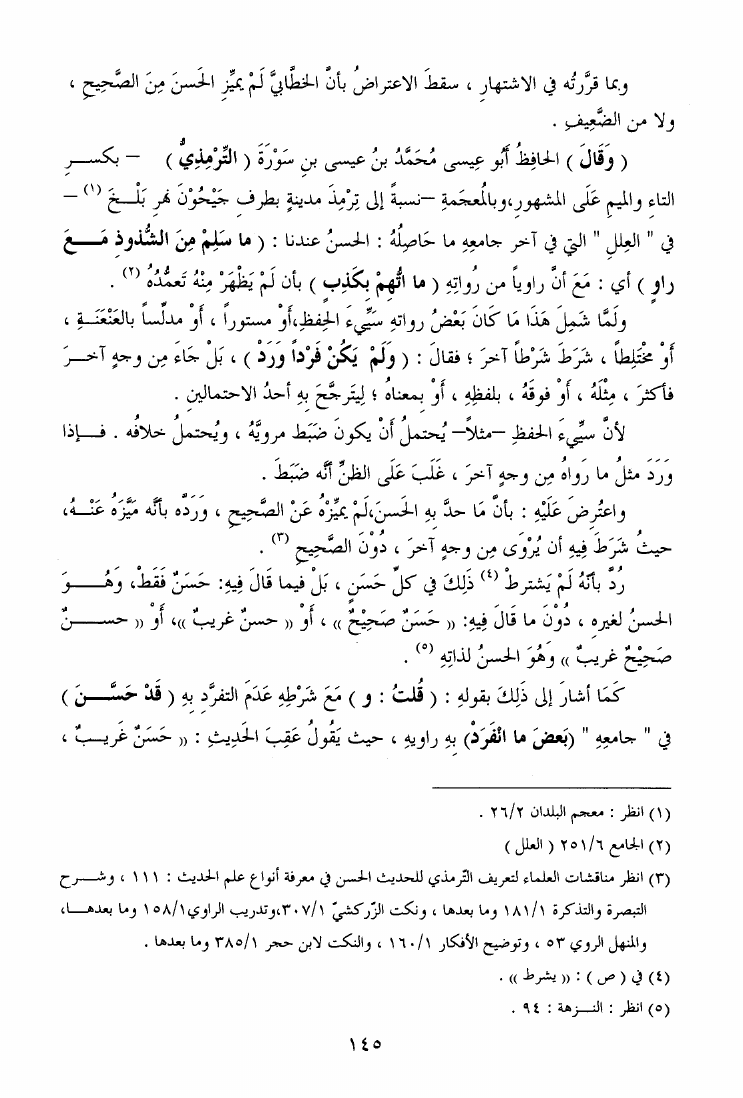 وبما قرَّرتُه في الاشتهارِ ، سقطَ الاعتراضُ بأنَّ الخطَّابيَّ لَمْ يميِّزِ الحَسنَ مِنَ الصَّحِيحِ ،
ولا من الضَّعِيفِ .
( وَقَالَ ) الحافِظُ أَبُو عِيسى مُحَمَّدُ بنُ عيسى بنِ سَوْرَةَ ( التِّرْمِذِيُّ ) – بكســرِ
التاء والميم عَلَى المشهورِ،وبالمُعجَمةِ –نسبةً إلى تِرْمِذَ مدينةٍ بطرفِ جَيْحُوْنَ نَهرِ بَلْــخَ (١) –
في " العِللِ " التي في آخر جامعِهِ ما حَاصِلُهُ : الحسنُ عندنا : ( ما سَلِمْ مِنَ الشُّذوذِ مَــعَ
راوٍ ) أي : مَعَ أنَّ راوياً من رُواتِهِ ( ما اتُّهِمْ بِكَذِبِ ) بأن لَمْ يَظْهَرْ مِنْهُ تَعمُّدُهُ (٢) .
ولَمَّا شَمِلَ هَذَا مَا كَانَ بَعْضُ رواتهِ سَيِّيءَ الحِفظِ،أَوْ مستوراً ، أَوْ مدلِّساً بالعَنْعَنَــةِ ،
أَوْ مُخْتَلِطاً ، شَرَطَ شَرْطاً آخرَ ؛ فقالَ : ( وَلَمْ يَكُنْ فَرْداً وَرَدْ ) ، بَلْ جَاءَ مِن وجهٍ آخــرَ
فأكثرَ ، مِثْلَهُ ، أَوْ فوقَهُ ، بلفظِهِ ، أَوْ بمعناهُ ؛ لِيَترجَّحَ بِهِ أحدُ الاحتمالينِ .
لأنَّ سيِّيءَ الحفظِ –مثلاً– يُحتملُ أنْ يكونَ ضَبَط مرويَّهُ ، ويُحتملُ خلافُه . فــإذا
وَرَدَ مثلُ ما رَواهُ مِن وجهٍ آخرَ ، غَلَبَ عَلَى الظنِّ أنَّه ضَبَطَ .
واعتُرِضَ عَلَيْهِ : بأنَّ مَا حدَّ بِهِ الحَسنَ،لَمْ يميِّزْهُ عَنْ الصَّحِيحِ ، وَرَدَّه بأنَّه مَيَّزَهُ عَنْــهُ،
حيثُ شَرَطَ فِيهِ أن يُرْوَى مِن وجهٍ آخرَ ، دُوْنَ الصَّحِيحِ (٣) .
رُدَّ بأنَّهُ لَمْ يَشترطْ (٤) ذَلِكَ في كلِّ حَسَنٍ ، بَلْ فيما قَالَ فِيهِ: حَسَنٌ فَقَطْ، وَهُــوَ
الحسنُ لغيرِه ، دُوْنَ ما قَالَ فِيهِ: « حَسَنٌ صَحِيْحٌ » ، أَوْ « حسنٌ غريبٌ »، أَوْ « حســنٌ
صَحِيْحٌ غريبٌ » وَهُوَ الحسنُ لذاتِهِ (٥) .
كَمَا أشارَ إلى ذَلِكَ بقولهِ : ( قُلتُ : و ) مَعَ شَرْطِهِ عَدَمَ التفرَّد بِهِ ( قَدْ حَسَّــنَ )
في " جامعِهِ " (بَعضَ ما انْفَرَدْ) بِهِ راويهِ ، حيث يَقُولُ عَقِبَ الحَدِيثِ : « حَسَنٌ غَريــبٌ ،
(١) انظر : معجم البلدان ٢٦/٢ .
(٢) الجامع ٢٥١/٦ ( العلل )
(٣) انظر مناقشات العلماء لتعريف التّرمذي للحديث الحسن في معرفة أنواع علم الحديث : ١١١ ، وشــرح
التبصرة والتذكرة ١٨١/١ وما بعدها ، ونكت الزّركشيّ ٣٠٧/١،وتدريب الراوي١٥٨/١ وما بعدهــا،
والمنهل الروي ٥٣ ، وتوضيح الأفكار ١٦٠/١ ، والنكت لابن حجر ٣٨٥/١ وما بعدها .
(٤) في ( ص ) : « يشرط » .
(٥) انظر : النــزهة : ٩٤ .
١٤٥